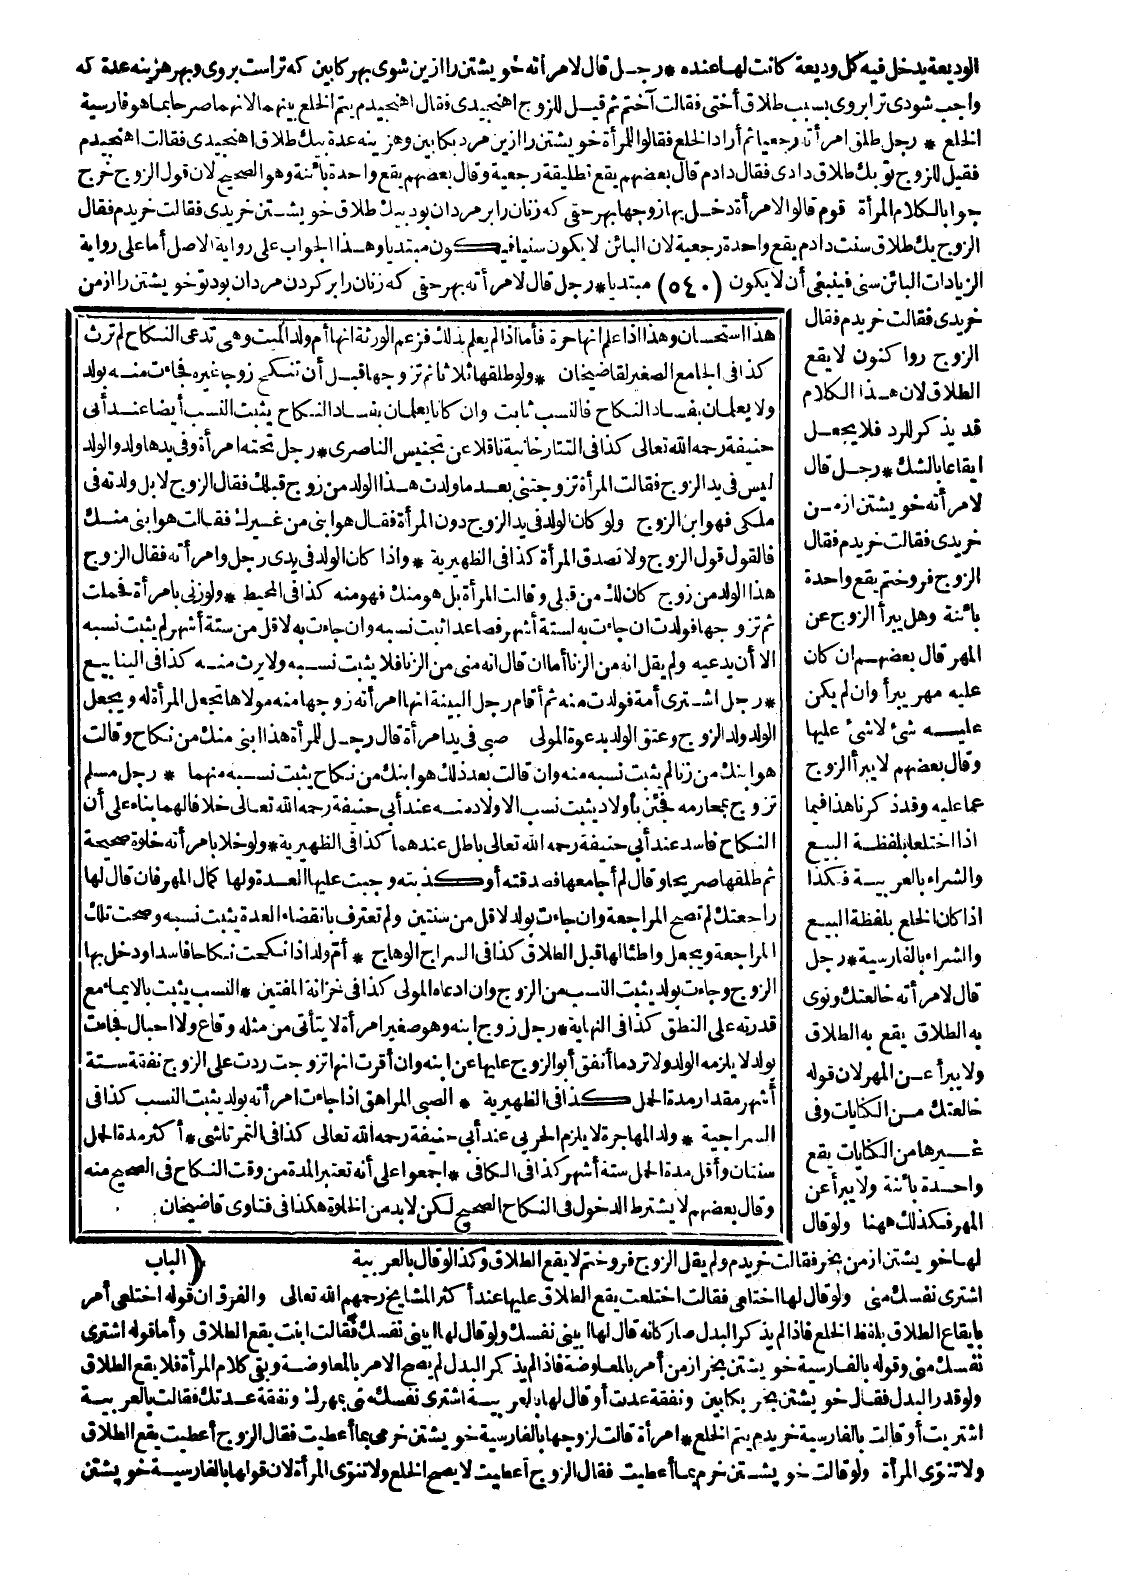 الوديعة يدخل فيه كل وديعة كانت لها عنده * رجل قال لامرأته خويشتن را ازين شوى بهر كابين كه تراست بروى وبهر هزينه عدة كه
واجب شودى ترا بروى بسبب طلاق أختى فقالت آختم ثم قيل للزوج اهنجيدى فقال اهنجيدم يتم الخلع بينهما لانهما صرحا بما هو فارسية
الخلع * رجل طلق امرأته رجعيا ثم أراد الخلع فقالوا للمرأة خويشتن را ازين مرد بكابين وهزينه عدة بيك طلاق اهنجيدى فقالت اهنجيدم
فقيل للزوج تو يك طلاق دادى فقال دادم قال بعضهم يقع تطليقة رجعية وقال بعضهم يقع واحدة بائنة وهو الصحيح لان قول الزوج خرج
جوابا لكلام المرأة قوم قالوا لامرأة دخل بها زوجها بهر حقى كه زنان را بر مردان بود بيك طلاق خويشتن خريدى فقالت خريدم فقال
الزوج يك طلاق سنت دادم يقع واحدة رجعية لان البائن لا يكون سنيا فيكون مبتديا وهذا الجواب على رواية الاصل أما على رواية
الزيادات البائن سنى فينبغى أن لا يكون (٥٤٠) مبتديا * رجل قال لامرأته بهر حقى كه زنان را بر كردن مردان بود تو خويشتن را از من
خريدى فقالت خريدم فقال
الزوج روا كنون لا يقع
الطلاق لان هذا الكلام
قد يذكر للرد فلا يجعل
ايقاعا بالشك * رجل قال
لامرأته خويشتن از من
خريدى فقالت خريدم فقال
الزوج فروختم يقع واحدة
بائنة وهل يبرأ الزوج عن
المهر قال بعضهم ان كان
عليه مهر يبرأ وان لم يكن
عليه شئ لا شئ عليها
وقال بعضهم لا يبرأ الزوج
عما عليه وقد ذكرنا هذا فيما
اذا اختلعا بلفظة البيع
والشراء بالعربية فكذا
اذا كان الخلع بلفظة البيع
والشراء بالفارسية * رجل
قال لامرأته خالعتك ونوى
به الطلاق يقع به الطلاق
ولا يبرأ عن المهر لان قوله
خالعتك من الكنايات وفى
غيرها من الكنايات يقع
واحدة بائنة ولا يبرأ عن
المهر فكذلك ههنا ولو قال
هذا استحسان وهذا اذا علم انها حرة فأما اذا لم يعلم بذلك فزعم الورثة انها أم ولد الميت وهى تدعى النكاح لم ترث
كذا فى الجامع الصغير لقاضيخان * ولو طلقها ثلاثا ثم تزوجها قبل أن تنكح زوجا غيره فجاءت منه بولد
ولا يعلمان بفساد النكاح فالنسب ثابت وان كانا يعلمان بفساد النكاح يثبت النسب أيضا عند أبى
حنيفة رحمه الله تعالى كذا فى التتارخانية ناقلا عن تجنيس الناصرى * رجل تحته امرأة وفى يدها ولد والولد
ليس فى يد الزوج فقالت المرأة تزوجتنى بعد ما ولدت هذا الولد من زوج قبلك فقال الزوج لا بل ولدته فى
ملكى فهو ابن الزوج ولو كان الولد فى يد الزوج دون المرأة فقال هو ابنى من غيرك فقالت هو ابنى منك
فالقول قول الزوج ولا تصدق المرأة كذا فى الظهيرية * واذا كان الولد فى يدى رجل وامرأته فقال الزوج
هذا الولد من زوج كان لك من قبلى وقالت المرأة بل هو منك فهو منه كذا فى المحيط * ولو زنى بامرأة فحملت
ثم تزوجها فولدت ان جاءت به لستة أشهر فصاعدا ثبت نسبه وان جاءت به لاقل من ستة أشهر لم يثبت نسبه
الا أن يدعيه ولم يقل انه من الزنا أما ان قال انه منى من الزنا فلا يثبت نسبه ولا يرث منه كذا فى الينابيع
* رجل اشترى أمة فولدت منه ثم أقام رجل البينة انها امرأته زوجها منه مولاها تجعل المرأة له ويجعل
الولد ولد الزوج وعتق الولد بدعوة المولى صبى فى يد امرأة قال رجل للمرأة هذا ابنى منك من نكاح وقالت
هو ابنك من زنا لم يثبت نسبه منه وان قالت بعد ذلك هو ابنك من نكاح يثبت نسبه منهما * رجل مسلم
تزوج بمحارمه فجئن بأولاد يثبت نسب الاولاد منه عند أبى حنيفة رحمه الله تعالى خلافا لهما بناء على أن
النكاح فاسد عند أبى حنيفة رحمه الله تعالى باطل عندهما كذا فى الظهيرية * ولو خلا بامرأته خلوة صحيحة
ثم طلقها صريحا وقال لم أجامعها فصدقته أو كذبته وجبت عليها العدة ولها كمال المهر فان قال لها
راجعتك لم تصح المراجعة وان جاءت بولد لاقل من سنتين ولم تعترف بانقضاء العدة يثبت نسبه وصحت تلك
المراجعة ويجعل واطئا لها قبل الطلاق كذا فى السراج الوهاج * أم ولد اذا نكحت نكاحا فاسدا ودخل بها
الزوج وجاءت بولد يثبت النسب من الزوج وان ادعاه المولى كذا فى خزانة المفتين * النسب يثبت بالايماء مع
قدرته على النطق كذا فى النهاية * رجل زوج ابنه وهو صغير امرأة لا يتأتى من مثله وقاع ولا احبال فجاءت
بولد لا يلزمه الولد ولا ترد ما أنفق أبو الزوج عليها عن ابنه وان أقرت انها تزوجت ردت على الزوج نفقة ستة
أشهر مقدار مدة الحمل كذا فى الظهيرية * الصبى المراهق اذا جاءت امرأته بولد يثبت النسب كذا فى
السراجية * ولد المهاجرة لا يلزم الحربى عند أبى حنيفة رحمه الله تعالى كذا فى التمرتاشى * أكثر مدة الحمل
سنتان وأقل مدة الحمل ستة أشهر كذا فى الكافى * اجمعوا على أنه تعتبر المدة من وقت النكاح فى الصحيح منه
وقال بعضهم لا يشترط الدخول فى النكاح الصحيح لكن لا بد من الخلوة هكذا فى فتاوى قاضيخان
لها خويشتن از من بخر فقالت خريدم ولم يقل الزوج فروختم لا يقع الطلاق وكذا لو قال بالعربية (الباب
اشترى نفسك منى ولو قال لها اختلعى فقالت اختلعت يقع الطلاق عليها عند أكثر المشايخ رحمهم الله تعالى والفرق ان قوله اختلعى أمر
بايقاع الطلاق بلفظ الخلع فاذا لم يذكر البدل صار كانه قال لها ابينى نفسك ولو قال لها ابينى نفسك فقالت ابنت يقع الطلاق وأما قوله اشترى
نفسك منى وقوله بالفارسية خويشتن بخر از من أمر بالمعاوضة فاذا لم يذكر البدل لم يصح الامر بالمعاوضة وبقى كلام المرأة فلا يقع الطلاق
ولو قدر البدل فقال خويشتن بخر بكابين ونفقة عدت أو قال لها بالعربية اشترى نفسك منى بمهرك ونفقة عدتك فقالت بالعربية
اشتريت أو قالت بالفارسية خريدم يتم الخلع * امرأة قالت لزوجها بالفارسية خويشتن خرمى بما أعطيت فقال الزوج أعطيت يقع الطلاق
ولا تنوى المرأة ولو قالت خويشتن خرم بما أعطيت فقال الزوج أعطيت لا يصح الخلع ولا تنوى المرأة لان قولها بالفارسية خويشتن